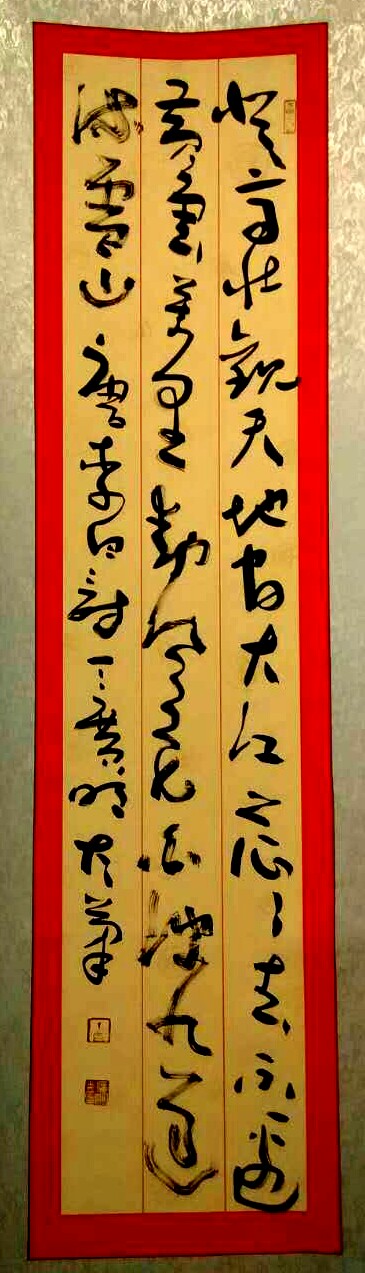 登高壮觀天地間大江茫茫去不還
黄雲萬里動風色白波九道
流雪山 唐李白詩 丁 黄明大草